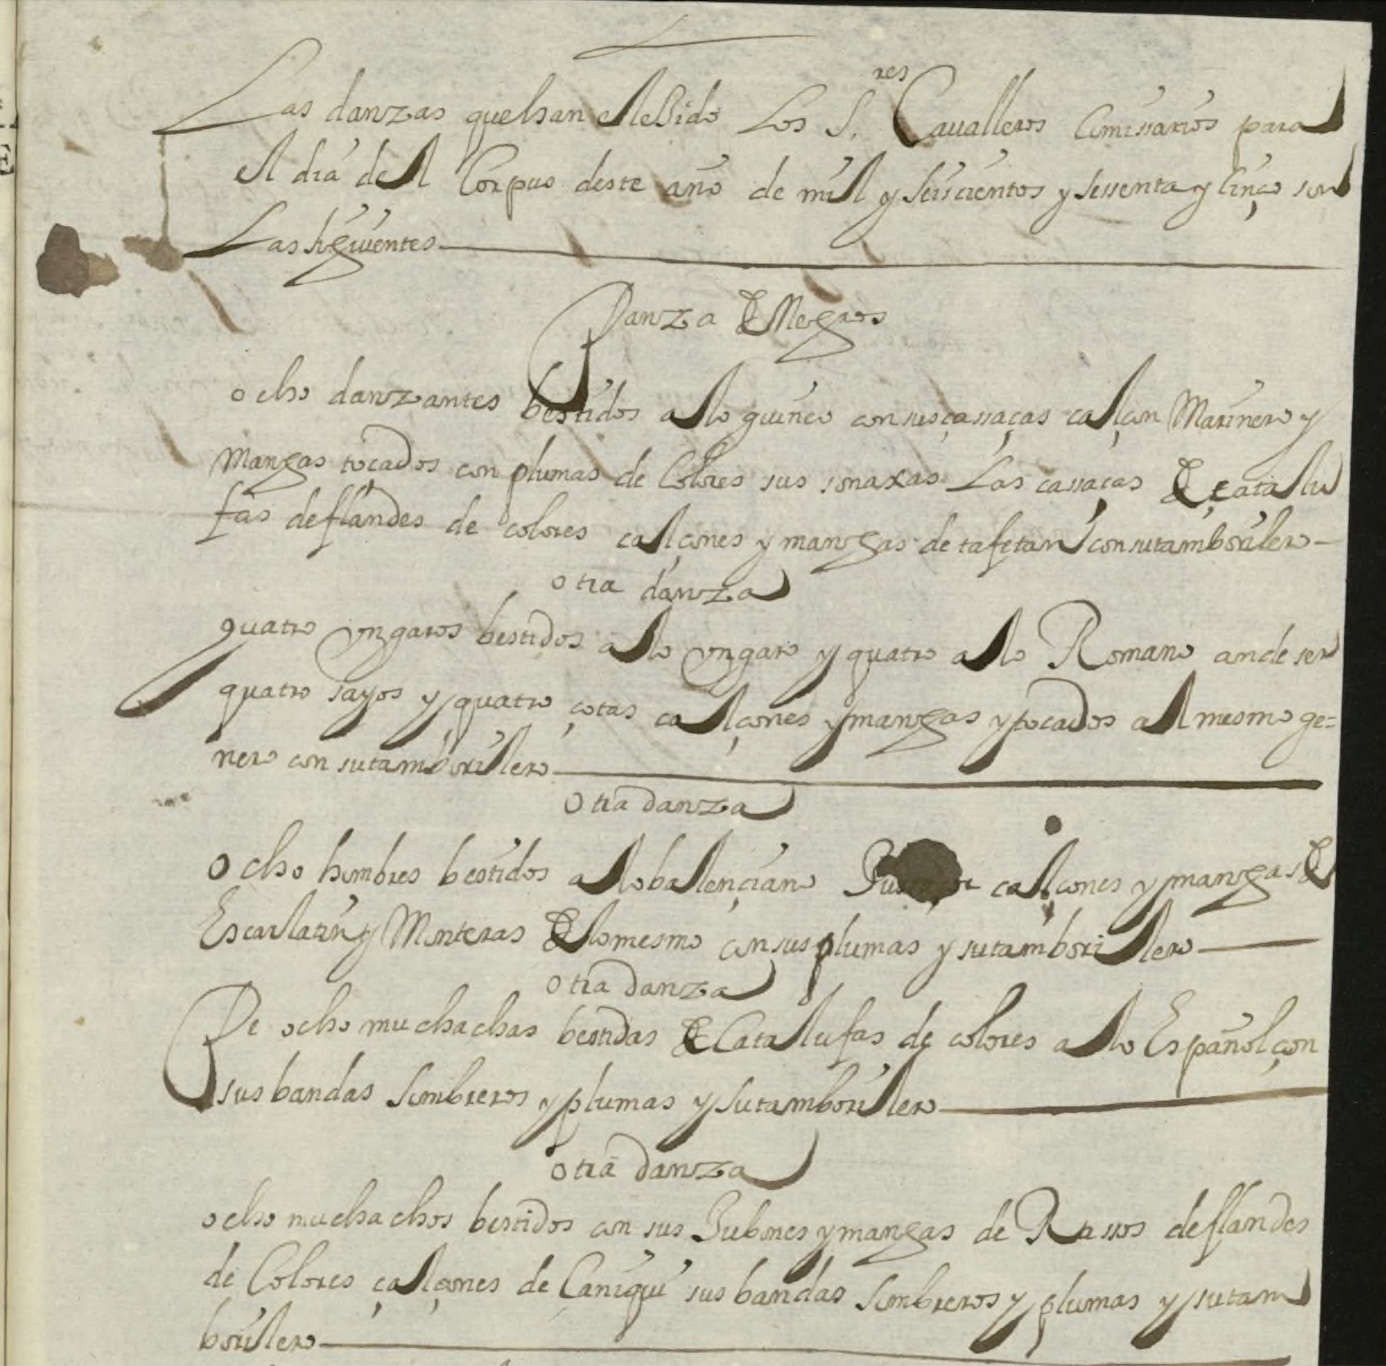 Las danzas que han elebido Los S.res Cavalleros Comissarios para
el dia del Corpus deste año de mil y seiscientos y sessenta y çinco son
Las siguientes
Danza de Negros
ocho danzantes bestidos a lo guineo con sus cassaças calçon Marinero y
mangas toçados con plumas de Colores sus sonaxas Las cassaças de catalu
fas de flandes de colores calçones y mangas de tafetan con su tamborilero
otra danza
quatro Ungaros bestidos a lo Ungaro y quatro a lo Romano an de ser
quatro sayos y quatro cotas calçones y mangas y tocados al mesmo ge=
nero con su tamborilero
Otra danza
Ocho hombres bestidos a lo balençiano calçones y mangas de
Escarlatin y Monteras de lo mesmo con sus plumas y su tamborilero
otra danza
De ocho muchachas bestidas de Catalufas de colores a lo Español con
sus bandas sombreros y plumas y su tamborilero
otra danza
ocho muchachos bestidos con sus Jubones y mangas de Rassos de flandes
de Colores calçones de Caniqui sus bandas sombreros y plumas y su tam
borilero